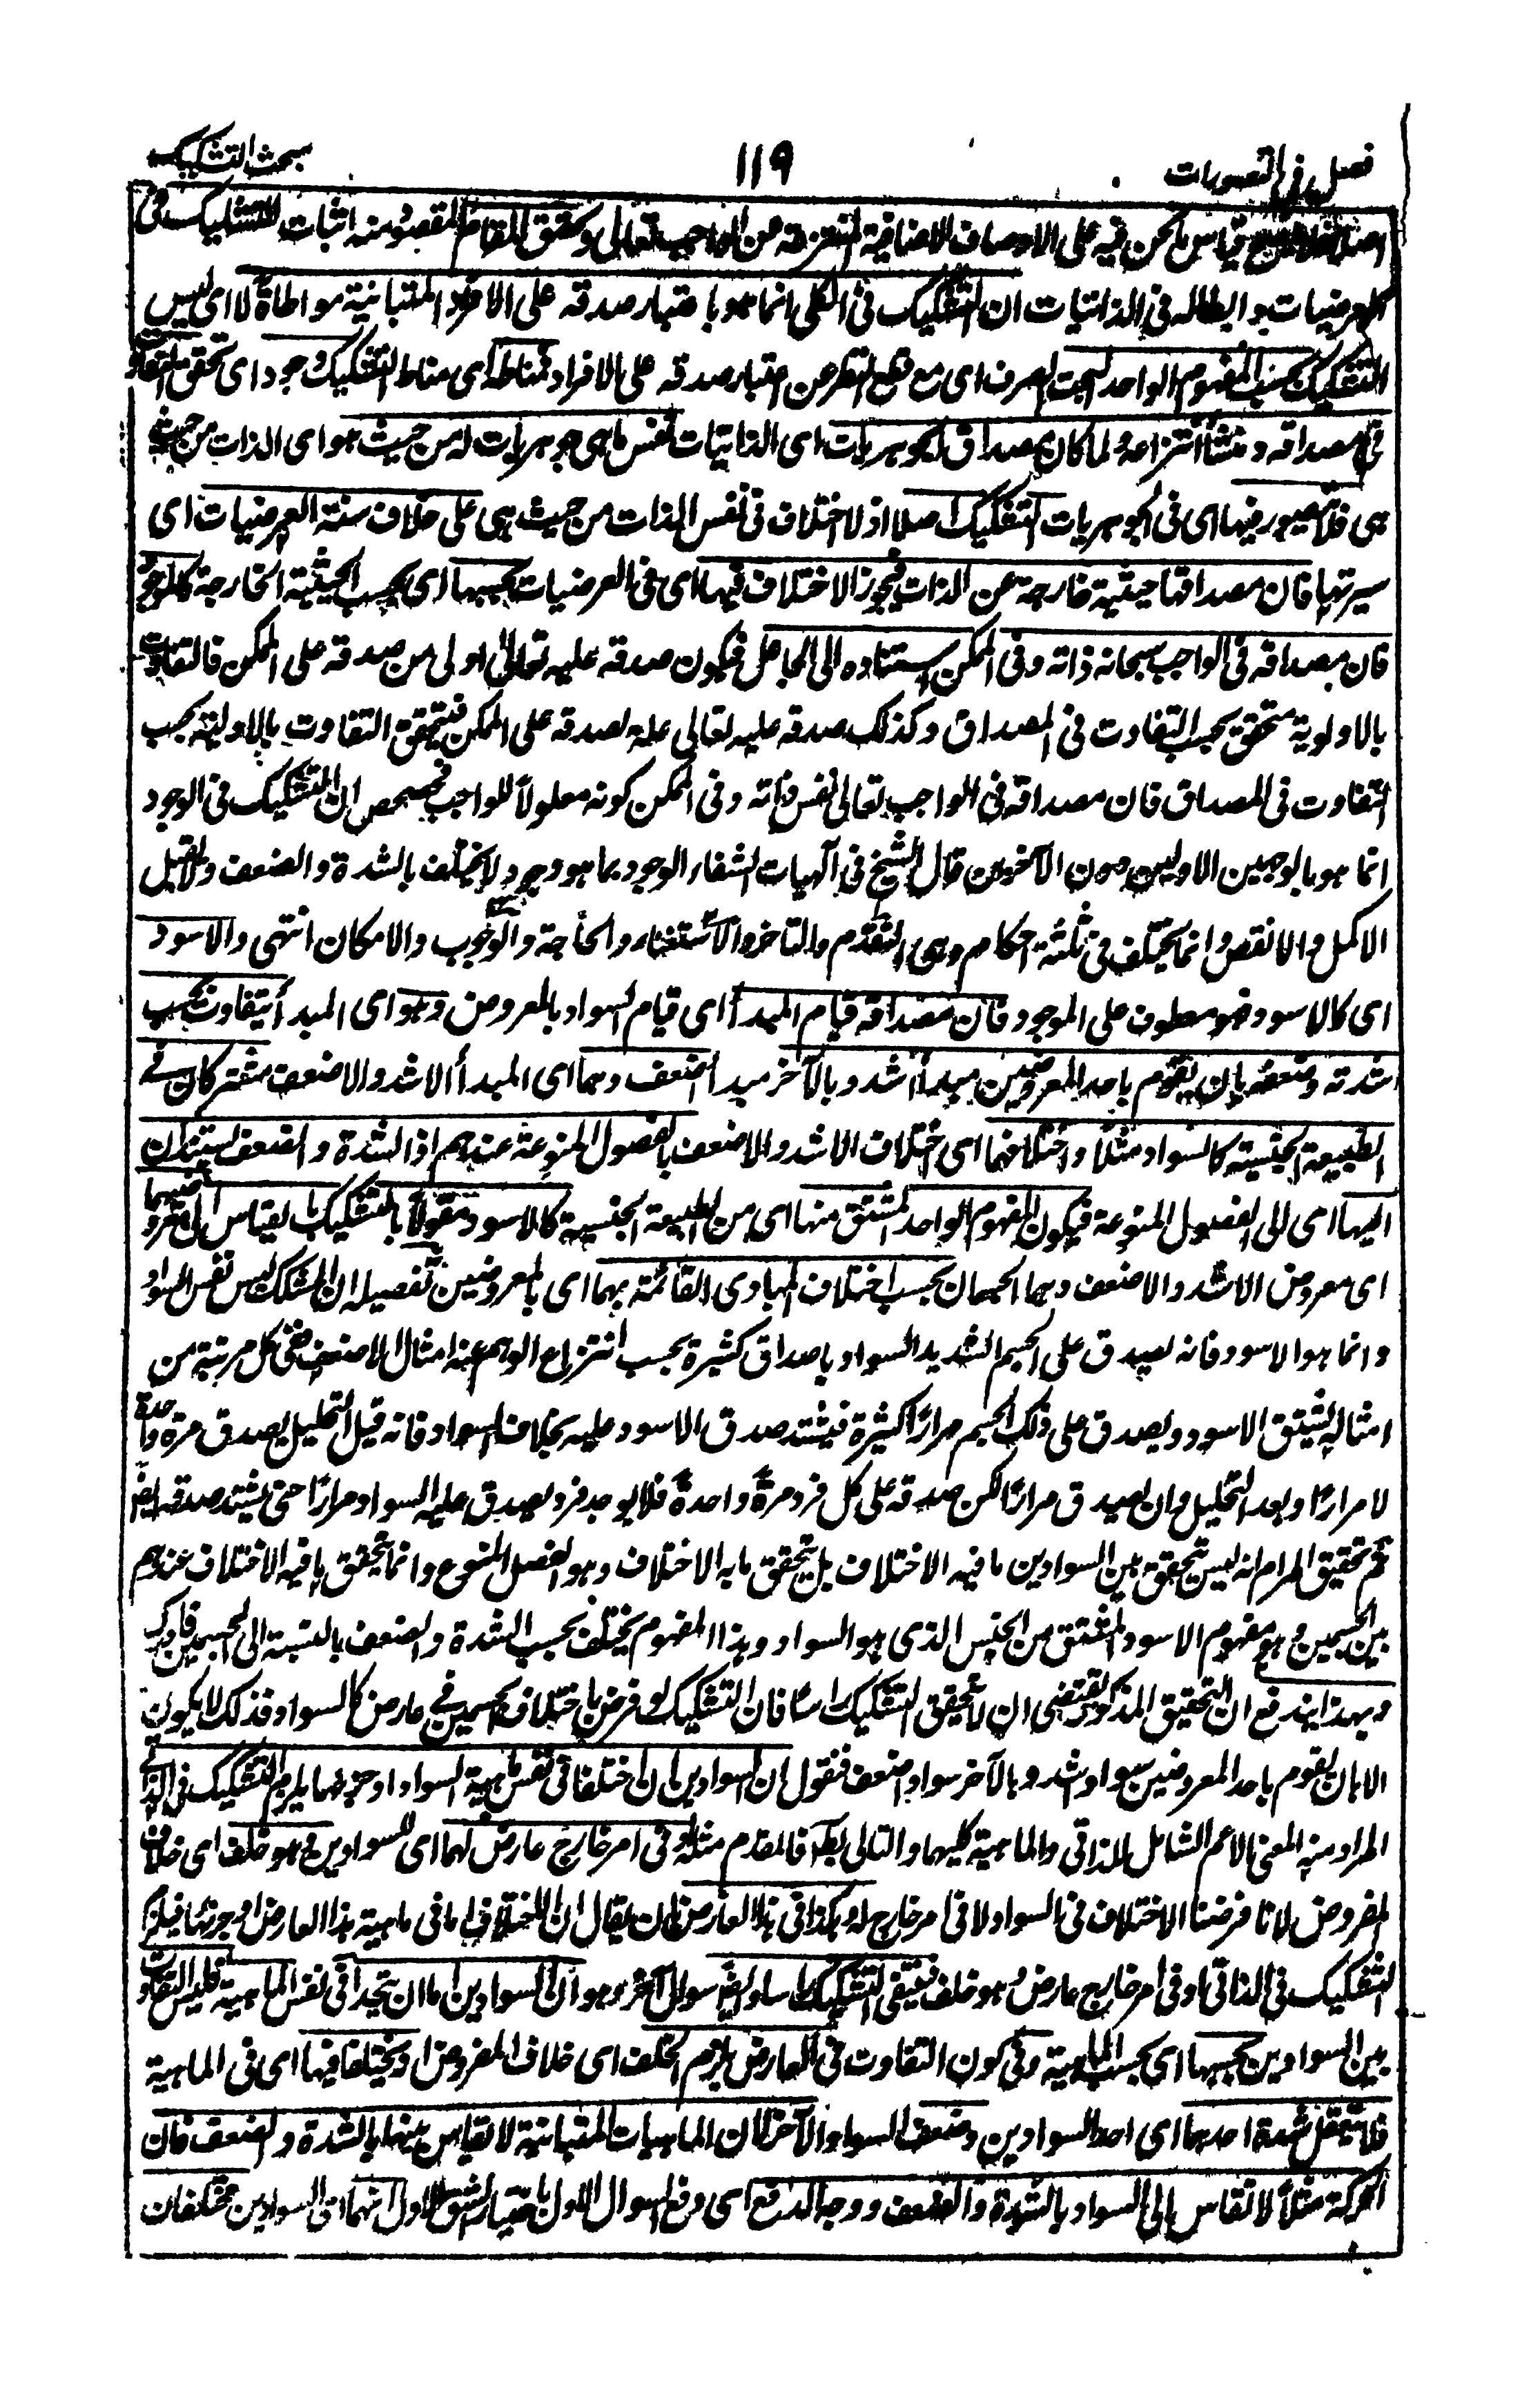 فصل فی التصورات
١١٩
بحث التشکیک
قیاس ما نحن فیه علی الاوصاف الاضافیة المنتزعة من الواجب تعالی وتحقق المقام المقصود منه اثبات التشکیک فی
العرضیات وابطاله فی الذاتیات ان التشکیک فی الکلی انما هو باعتبار صدقه علی الافراد المتباینة مواطاةً لا ای لیس
التشکیک بحسب المفهوم الواحد البحت الصرف ای مع قطع النظر عن اعتبار صدقه علی الافراد فمناطه ای مناط التشکیک وجود ای تحقق التفاوت
فی مصداقه ومنشأ انتزاعه ولما کان مصداق الجوهریات ای الذاتیات نفس ما هی جوهریات له من حیث هو ای الذات من حیث
هی فلا یتصور فیها ای فی الجوهریات التشکیک اصلا اذ لا اختلاف فی نفس الذات من حیث هی علی خلاف سنة العرضیات ای
سیرتها فان مصداقها حیثیة خارجة عن الذات فیجوز الاختلاف فیها ای فی العرضیات بحسبها ای بحسب الحیثیة الخارجة کالوجود
فان مصداقه فی الواجب سبحانه ذاته وفی الممکن استناده الی الجاعل فیکون صدقه علیه تعالی اولی من صدقه علی الممکن فالتفاوت
بالاولویة متحقق بحسب التفاوت فی المصداق وکذلک صدقه علیه تعالی علة لصدقه علی الممکن فیتحقق التفاوت بالاولیة بحسب
التفاوت فی المصداق فان مصداقه فی الواجب تعالی نفس ذاته وفی الممکن کونه معلولاً للواجب فحصحص ان التشکیک فی الوجود
انما هو بالوجهین الاولین دون الآخرین قال الشیخ فی آلهیات الشفاء الوجود بما هو وجود لا یختلف بالشدة والضعف ولا یقبل
الاکمل والانقص وانما یختلف فی ثلثة احکام وهی التقدم والتاخر والاستغناء والحاجة والوجوب والامکان انتهی والاسود
ای کالاسود فهو معطوف علی الموجود فان مصداقه قیام المبدأ ای قیام السواد بالمعروض وهو ای المبدأ یتفاوت بحسب
شدته وضعفه بان یقوم باحد المعروضین مبدأ اشد وبالآخر مبدأ اضعف وهما ای المبدأ الاشد والاضعف مشترکان فی
الطبیعة الجنسیة کالسواد مثلاً واختلافهما ای اختلاف الاشد والاضعف بالفصول المنوعة عندهم اذ الشدة والضعف یستندان
الیها ای الی الفصول المنوعة فیکون المفهوم الواحد المشتق منها ای من الطبیعة الجنسیة کالاسود مقولاً بالتشکیک بالقیاس الی معروضیهما
ای معروض الاشد والاضعف وهما الجسمان بحسب اختلاف المبادی القائمة بهما ای بالمعروضین تفصیله ان المشکک لیس نفس السواد
وانما هو الاسود فانه یصدق علی الجسم الشدید السواد باصداق کثیرة بحسب انتزاع الوهم عنه امثال الاضعف فمن کل مرتبة من
امثاله یشتق الاسود ویصدق علی ذلک الجسم مراراً کثیرة فیشتد صدق الاسود علیه بخلاف السواد فانه قبل التحلیل یصدق مرة واحدة
لا مراراً وبعد التحلیل وان یصدق مراراً لکن صدقه علی کل فرد مرةً واحدةً فلا یوجد فرد یصدق علیه السواد مراراً حتی یشتد صدقه ایضا
ثم تحقیق المرام انه لیس یتحقق بین السوادین ما فیه الاختلاف بل یتحقق ما به الاختلاف وهو الفصل المنوع وانما یتحقق ما فیه الاختلاف عندهم
بین الجسمین وهو مفهوم الاسود المشتق من الجنس الذی هو السواد وهذا المفهوم یختلف بحسب الشدة والضعف بالنسبة الی الجسمین
وبهذا اندفع ان التحقیق المذکور یقتضی ان لا یتحقق التشکیک راسًا فان التشکیک لو فرض باختلاف الجسمین فی عارض کالسواد فذلک لا یکون
الا بان یقوم باحد المعروضین سواد اشد وبالآخر سواد اضعف فنقول ان السوادین ان اختلفا فی نفس ماهیة السواد او جزئها یلزم التشکیک فی الذاتی
المراد منه المعنی الاعم الشامل للذاتی والماهیة کلیهما والتالی بط فالمقدم مثله وفی امر خارج عارض لهما ای للسوادین فهو خلف ای خلاف
المفروض لانا فرضنا الاختلاف فی السواد لا فی امر خارج له وهکذا فی هذا العارض بان یقال ان الاختلاف اما فی ماهیة هذا العارض او جزئها فیلزم
التشکیک فی الذاتی او فی امر خارج عارض وهو خلف فینتفی التشکیک راسا وایضا سوال آخر وهو ان السوادین اما ان یتحدا فی نفس الماهیة فلیس التفاوت
بین السوادین بحسبها ای بحسب الماهیة وفی کون التفاوت فی العارض یلزم الخلف ای خلاف المفروض او یختلفا فیها ای فی الماهیة
فلا یتعقل شدة احدهما ای احد السوادین وضعف السواد الآخر لان الماهیات المتباینة لا یقاس بینها بالشدة والضعف فان
الحرکة مثلاً لا تقاس الی السواد بالشدة والضعف ووجه الدفع ای دفع السوال الاول باختیار الشق الاول انهما ای السوادین مختلفان